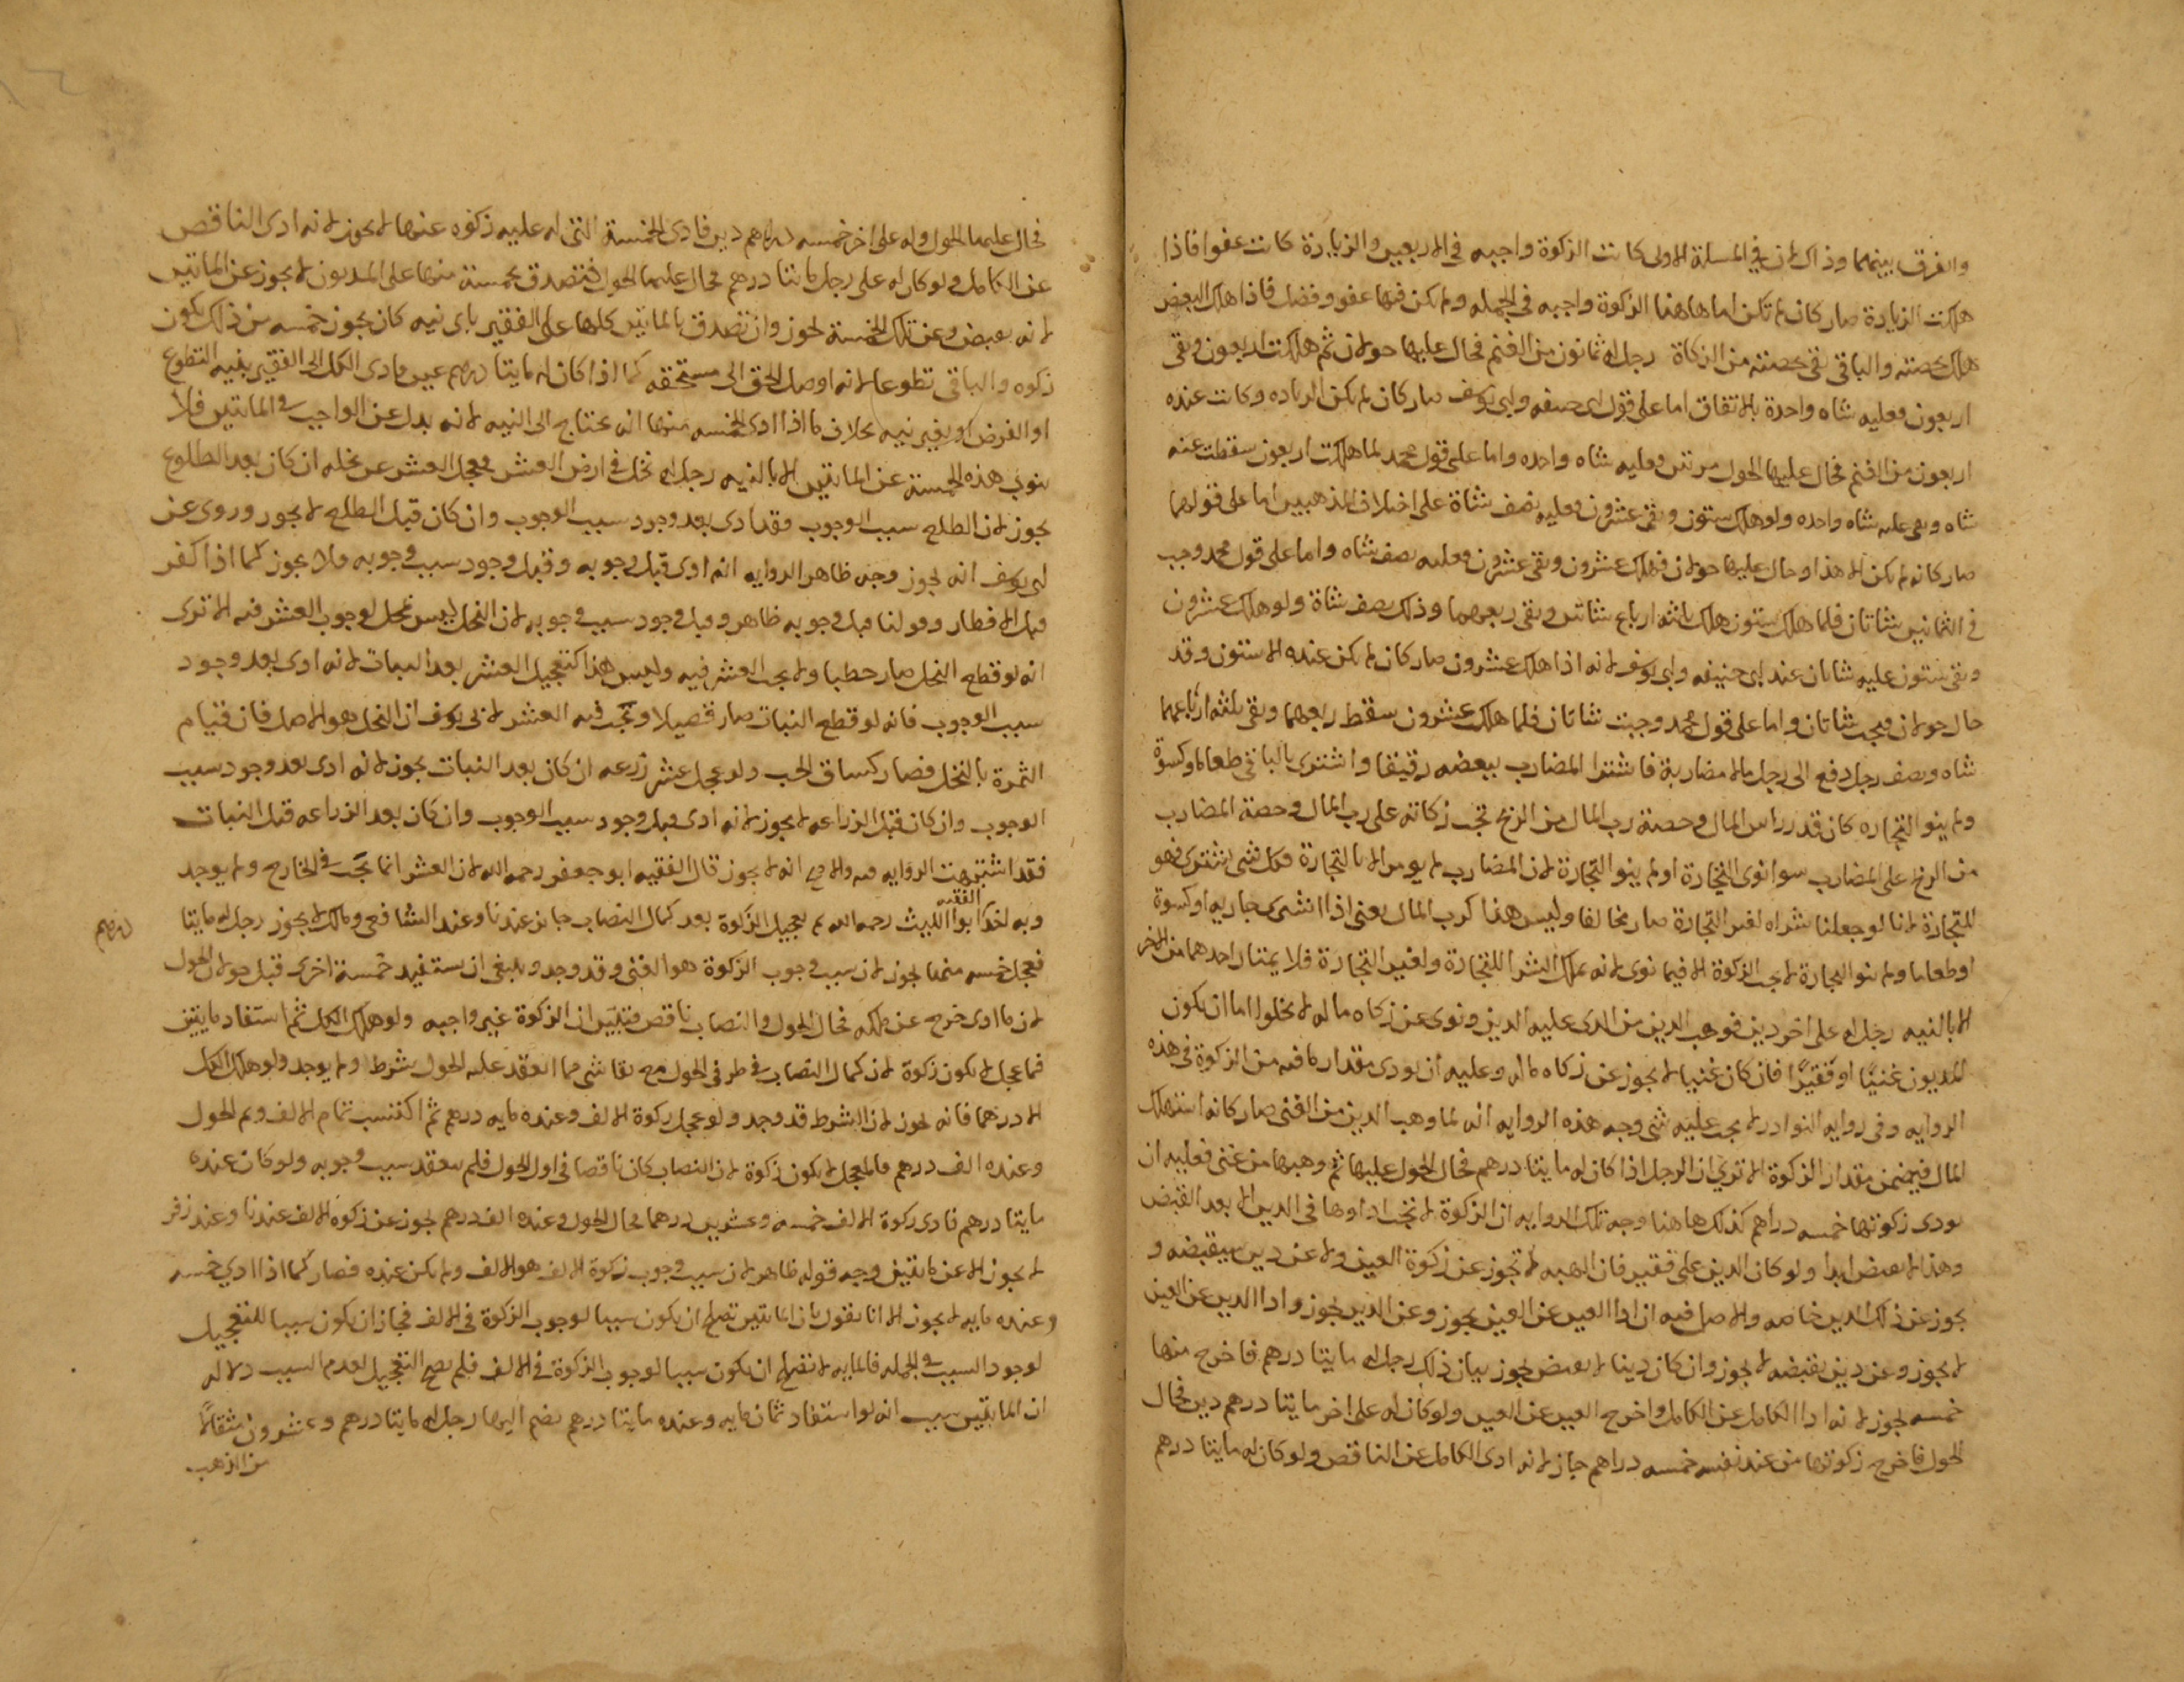 والفرق بينهما وذاك لان في المسلة الاولى كانت الزكوة واجبه في الاربعين والزيادة كانت عفوا فاذا
هلكت الزيادة صار كان لم تكن اما هاهنا الزكوة واجبه في الجمله ولم يكن فيها عفو وفضل فاذا هلك البعض
هلك بحصته والباقي بقى بحصته من الزكاة رجل له ثمانون من الغنم فحال عليها حولان ثم هلكت اربعون وبقى
اربعون فعليه شاه واحدة بالاتفاق اما على قول ابى حنيفه وابى يوسف صار كان لم يكن الزياده وكانت عنده
اربعون من الغنم فحال عليها الحول مرتين فعليه شاه واحده واما على قول محمد لما هلكت اربعون سقطت عنه
شاه وبقى عليه شاه واحده ولو هلك ستون وبقى عشرون فعليه نصف شاة على اختلاف المذهبين اما على قولهما
صار كانه لم يكن الا هذا وحال عليها حولان فهلك عشرون وبقى عشرون فعليه نصف شاه واما على قول محمد وجب
في الثمانين شاتان فلما هلك ستون هلك ثلثه ارباع شاتين وبقى ربعهما وذلك نصف شاة ولو هلك عشرون
وبقى ستون عليه شاتان عند ابى حنيفه وابى يوسف لانه اذا هلك عشرون صار كان لم يكن عنده الا ستون وقد
حال حولان فيجب شاتان واما على قول محمد وجبت شاتان فلما هلك عشرون سقط ربعهما وبقى ثلثه ارباعهما
شاه ونصف رجل دفع الى رجل مالا مضاربة فاشترا المضارب ببعضه رقيقا واشترى بالباقي طعاما وكسوة
ولم ينو التجاره كان قدر راس المال وحصة رب المال من الربح تجب زكاته على رب المال وحصة المضارب
من الربح على المضارب سوا نوى التجارة او لم ينو التجارة لان المضارب لم يومر الا بالتجارة فكل شى اشترى فهو
للتجارة لانا لو جعلنا شراه لغير التجارة صار مخالفا وليس هذا كرب المال يعنى اذا اشترى جاريه او كسوة
او طعاما ولم ينو التجارة لا يجب الزكوة الا فيما نوى لانه يملك الشرا للتجارة ولغير التجارة فلا يمتاز احدهما من الاخر
الا بالنيه رجل له على اخر دين فوهب الدين من الذى عليه الدين ونوى عن زكاه ماله لا يخلوا اما ان يكون
المديون غنيًا او فقيرًا فان كان غنيا لا يجوز عن زكاه ماله وعليه ان يودى مقدار ما فيه من الزكوة في هذه
الروايه وفى روايه النوادر لا يجب عليه شى وجه هذه الروايه انه لما وهب الدين من الغنى صار كانه استهلك
المال فيضمن مقدار الزكوة الا ترى ان الرجل اذا كان له مايتا درهم فحال الحول عليها ثم وهبها من غنى فعليه ان
يودى زكوتها خمسه دراهم كذلك هاهنا وجه تلك الروايه ان الزكوة لا تجب اداوها في الدين الا بعد القبض
وهذا لا يقبض ابدا ولو كان الدين على فقير فان الهبه لا تجوز عن زكوة العين ولا عن دين سيقبضه و
يجوز عن ذلك الدين خاصه والاصل فيه ان ادا العين عن العين يجوز وعن الدين يجوز وادا الدين عن العين
لا يجوز وعن دين يقبضه لا يجوز وان كان دينا لا يقبض يجوز بيان ذلك رجل له مايتا درهم فاخرج منها
خمسه يجوز لانه ادا الكامل عن الكامل واخرج العين عن العين ولو كان له على اخر مايتا درهم دين فحال
الحول فاخرج زكوتها من عند نفسه خمسه دراهم جاز لانه ادى الكامل عن الناقص ولو كان له مايتا درهم
فحال عليها الحول وله على اخر خمسه دراهم دين فادى الخمسة التى له عليه زكوه عنها لا يجوز لانه ادى الناقص
عن الكامل ولو كان له على رجل مايتا درهم فحال عليها الحول فتصدق بخمسة منها على المديون لا يجوز عن الماتين
لانه يقبض وعن تلك الخمسة يجوز وان تصدق بالماتين كلها على الفقير باى نيه كان يجوز خمسه من ذلك يكون
زكوه والباقي تطوعا لانه اوصل الحق الى مستحقه كما اذا كان له مايتا درهم عين فادى الكل الى الفقير بنيه التطوع
او الفرض او بغير نيه بخلاف ما اذا ادى الخمسه منها انه يحتاج الى النيه لانه بدل عن الواجب في الماتين فلا
ينوب هذه الخمسة عن الماتين الا بالنيه رجل له نخل في ارض العشر فعجل العشر عن نخله ان كان بعد الطلوع
يجوز لان الطلع سبب الوجوب فقد ادى بعد وجود سبب الوجوب وان كان قبل الطلع لا يجوز وروى عن
ابى يوسف انه يجوز وجه ظاهر الروايه انه ادى قبل وجوبه وقبل وجود سبب وجوبه فلا يجوز كما اذا كفر
قبل الافطار وقولنا قبل وجوبه ظاهر وقبل وجود سبب وجوبه لان النخل ليس بمحل لوجوب العشر فيه الا ترى
انه لو قطع النخل صار حطبا ولا يجب العشر فيه وليس هذا كتعجيل العشر بعد النبات لانه ادى بعد وجود
سبب الوجوب فانه لو قطع النبات صار قصيلا وتجب فيه العشر لابى يوسف ان النخل هو الاصل فان قيام
الثمرة بالنخل فصار كساق الحب ولو عجل عشر زرعه ان كان بعد النبات يجوز لانه ادى بعد وجود سبب
الوجوب وان كان قبل الزراعه لا يجوز لانه ادى قبل وجود سبب الوجوب وان كان بعد الزراعه قبل النبات
فقد اشتبهت الروايه فيه والاصح انه لا يجوز قال الفقيه ابو جعفر رحمه الله لان العشر انما تجب في الخارج ولم يوجد
وبه اخذ الفقيه ابوا الليث رحمه الله تعجيل الزكوة بعد كمال النصاب جايز عندنا وعند الشافعى ومالك لا يجوز رجل له مايتا درهم
فعجل خمسه منها يجوز لان سبب وجوب الزكوة هو الغنى وقد وجد وينبغى ان يستفيد خمسة اخرى قبل حولان الحول
لان ما ادى خرج عن ملكه فحال الحول والنصاب ناقص فتبين ان الزكوة غير واجبه ولو هلك الكل ثم استفاد مايتين
فما عجل لا يكون زكوة لان كمال النصاب في طرفى الحول مع بقا شى مما انعقد عليه الحول شرط ولم يوجد ولو هلك الكل
الا درهما فانه يجوز لان الشرط قد وجد ولو عجل زكوة الالف وعنده مايه درهم ثم اكتسب تمام الالف وتم الحول
وعنده الف درهم فالمعجل لا يكون زكوة لان النصاب كان ناقصا في اول الحول فلم ينعقد سبب وجوبه ولو كان عنده
مايتا درهم فادى زكوة الالف خمسه وعشرين درهما فحال الحول وعنده الف درهم يجوز عن زكوة الالف عندنا وعند زفر
لا يجوز الا عن مايتين وجه قوله ظاهر لان سبب وجوب زكوة الالف هو الالف ولم يكن عنده فصار كما اذا ادي خمسه
وعنده مايه لا يجوز الا انا نقول بان الماتين تصلح ان يكون سببا لوجوب الزكوة في الالف فجاز ان يكون سببا للتعجيل
لوجود السبب في الجمله فالمايه لا تصلح ان يكون سببا لوجوب الزكوة في الالف فلم يصح التعجيل لعدم السبب دلاله
ان الماتين سبب انه لو استفاد ثمان مايه وعنده مايتا درهم يضم اليها رجل له مايتا درهم وعشرون مثقالًا
من الذهب